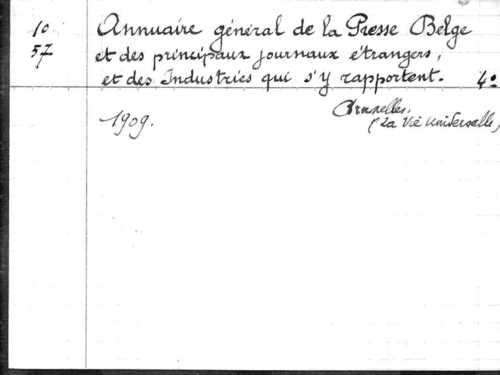 10 Annuaire général de la Presse Belge
57 et des principaux journaux étrangers,
et des Industries qui s'y rapportent. 4°
Bruxelles.
1909. (La Vie Universelle)